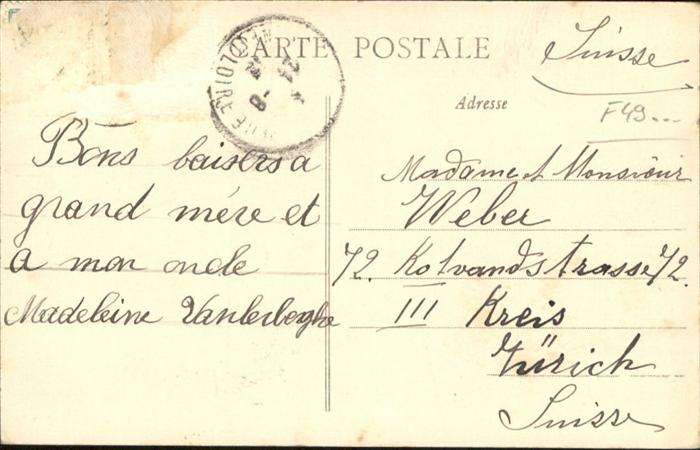 CARTE POSTALE
Suisse
Adresse
F49...
Bons baisers a
grand mére et
a mon oncle
Madeleine
Madame et Monsieur
Weber
72. Kolvandstrasse 72.
III Kreis
Zürich
Suisse
LOIRE